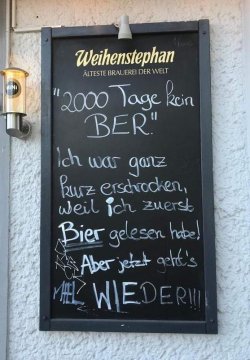 Weihenstephan
ÄLTESTE BRAUEREI DER WELT
"2000 Tage kein
BER."
Ich war ganz
kurz erschrocken,
weil ich zuerst
Bier gelesen habe!
Aber jetzt geht's
WIEDER!!!